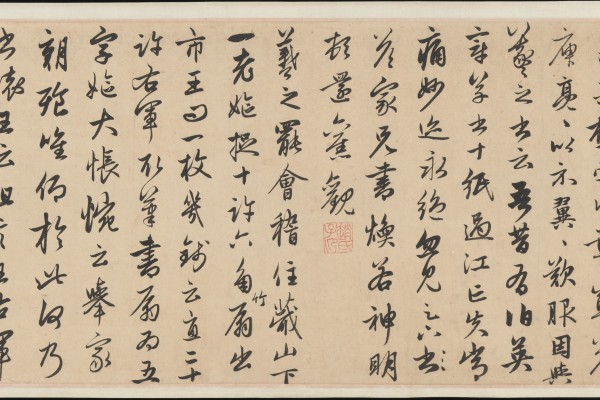 庾亮、以示翼、歎服因與
羲之書云吾昔有伯英
章草書十紙過江亡失常
痛妙迹永絕忽見足下書
答家兄書煥若神明
頓還舊觀
趙氏子昂
羲之罷會稽住蕺山下
一老嫗捉十許六角竹扇出
市王問一枚幾錢云直二十
許右軍取筆書扇為五
字嫗大悵惋云舉家
朝飧唯仰於此何乃
書壞王云但言王右軍